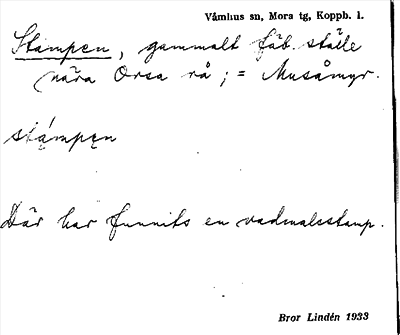 Våmhus sn, Mora tg, Koppb. l.
Stampen, gammalt fäb. ställe
(nära Orsa rå ; = Musåmyr.
stámpęn
Där har funnits en vadmalsstamp.
Bror Lindén 1933